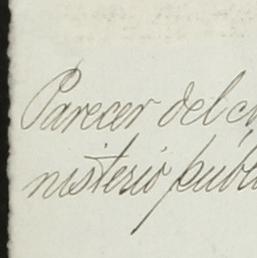 Parecer del c
nisterio públ